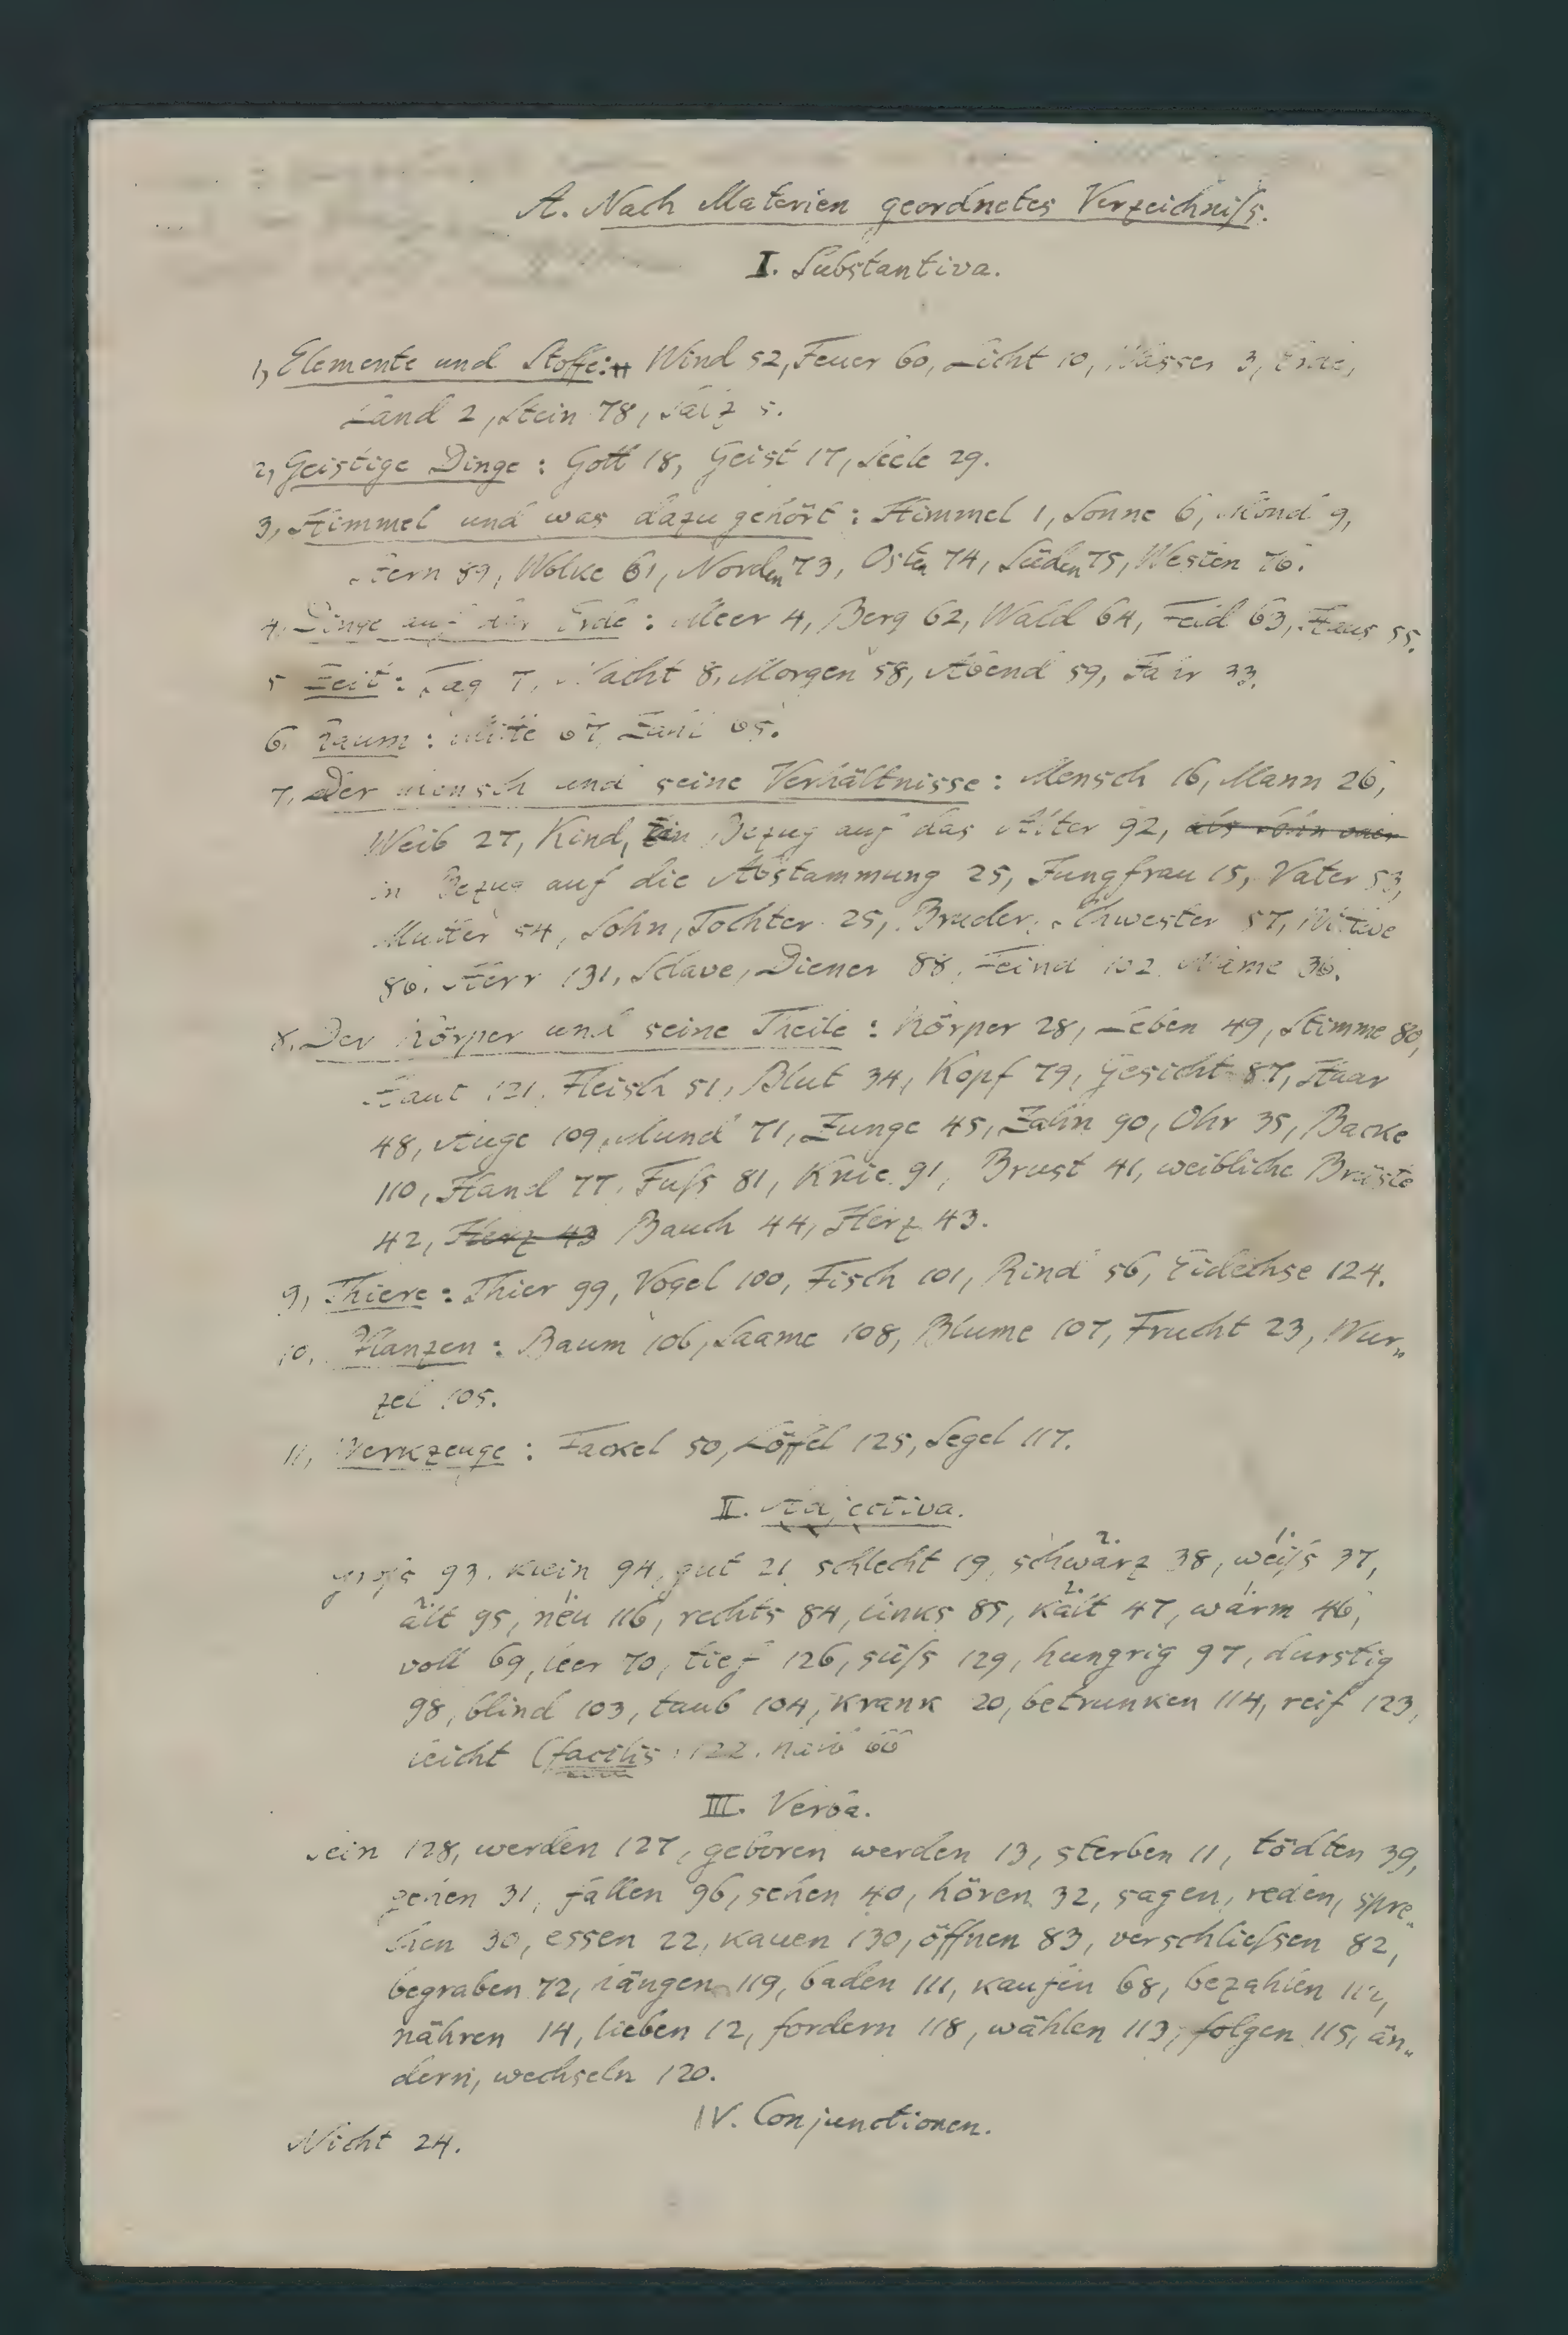 A. Nach Materien geordnetes Verzeichniſs.
I. Substantiva.
1, Elemente und Stoffe: Wind 52, Feuer 60, Licht 10, Wasser 3, Erde,
Land 2, Stein 78, Salz 5.
2, Geistige Dinge : Gott 18, Geist 17, Seele 29.
3, Himmel und was dazu gehört : Himmel 1, Sonne 6, Mond 9,
Stern 89, Wolke 61, Norden 73, Osten 74, Süden 75, Westen 76.
4. Dinge auf der Erde : Meer 4, Berg 62, Wald 64, Feld 63, Haus 55.
5 Zeit : Tag 7, Nacht 8, Morgen 58, Abend 59, Jahr 33.
6. Raum : Mitte 67, Zahl 65.
7. Der Mensch und seine Verhältnisse : Mensch 16, Mann 26,
Weib 27, Kind, in Bezug auf das Alter 92, als Sohn oder
in Bezug auf die Abstammung 25, Jungfrau 15, Vater 53,
Mutter 54, Sohn, Tochter 25, Bruder, Schwester 57, Wittwe
86. Herr 131, Sclave, Diener 88, Feind 102. Name 36.
8. Der Körper und seine Theile : Körper 28, Leben 49, Stimme 80,
Haut 121, Fleisch 51, Blut 34, Kopf 79, Gesicht 87, Haar
48, Auge 109, Mund 71, Zunge 45, Zahn 90, Ohr 35, Backe
110, Hand 77, Fuſs 81, Knie 91, Brust 41, weibliche Brüste
42, Herz 43 Bauch 44, Herz 43.
9, Thiere : Thier 99, Vogel 100, Fisch 101, Rind 56, Eidechse 124.
10. Pflanzen : Baum 106, Saame 108, Blume 107, Frucht 23, Wur„
zel 105.
11, Werkzeuge : Fackel 50, Löffel 125, Segel 117.
II. Adjectiva.
groſs 93. klein 94, gut 21, schlecht 19, schwarz 38, weiſs 37,
alt 95, neu 116, rechts 84, links 85, kalt 47, warm 46,
voll 69, leer 70, tief 126, süſs 129, hungrig 97, durstig
98, blind 103, taub 104, krank 20, betrunken 114, reif 123,
leicht (facilis) 122. halb 66
III. Verba.
Sein 128, werden 127, geboren werden 13, sterben 11, tödten 39,
gehen 31, fallen 96, sehen 40, hören 32, sagen, reden, spre„
chen 30, essen 22, kauen 130, öffnen 83, verschlieſsen 82,
begraben 72, hängen 119, baden 111, kaufen 68, bezahlen 112,
nähren 14, lieben 12, fordern 118, wählen 113, folgen 115, än„
dern, wechseln 120.
IV. Conjunctionen.
Nicht 24.